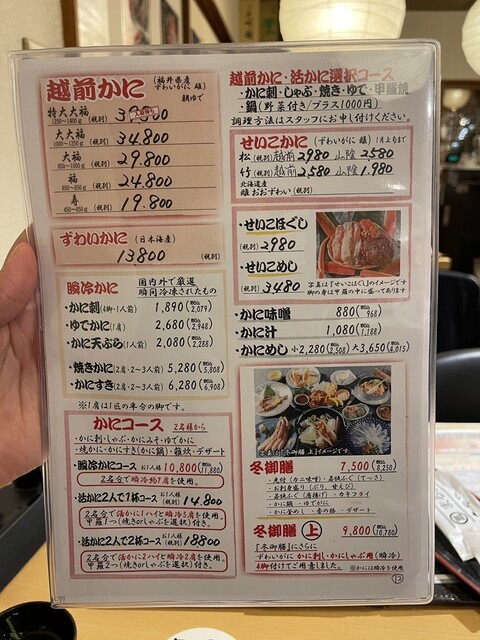 越前かに
(福井県産
ずわいかに 雄)
朝ゆで
特大大福
1250〜1400g
(税別)
大大福
1000〜1250g
(税別) 34.800
大福
(税別) 29.800
福
(税別) 24.800
寿
(税別) 19.800
ずわいかに (日本海産)
13800 (税別)
瞬冷かに
国内外で厳選
瞬間冷凍されたもの
・かに刺(4脚・1人前) 1,890(税込2,079)
・ゆでかに(1肩) 2,680(税込2,948)
・かに天ぷら(1人前) 2,080(税込2,288)
・焼きかに(2肩・2〜3人前) 5,280(税込5,808)
・かにすき(2肩・2〜3人前) 6,280(税込6,908)
※1肩は1匹の半分の脚です。
かにコース 2名様から
・かに刺・しゃぶ・かにみそ・ゆでかに
・焼かに・かにすき(かに鍋)・雑炊・デザート
・瞬冷かにコース お1人様 10,800(税込11,880)
2名分で瞬冷蟹7肩を使用。
・活かに2人で1杯コース お1人様 (税別) 14.800
2名分で活かに1ハイと瞬冷3肩を使用。
甲羅1つ(焼きorしゃぶを選択)付き。
・活かに2人で2杯コース お1人様 (税別) 18800
2名分で活かに2ハイと瞬冷2肩を使用。
甲羅2つ(焼きorしゃぶを選択)付き。
越前かに・活かに選択コース
・かに刺・しゃぶ・焼き・ゆで・甲羅焼
・鍋(野菜付き/プラス1000円)
調理方法はスタッフにお申し付けください。
せいこかに (ずわいかに 雌) 1月上旬まで
松(税別) 越前2980 山陰2580
竹(税別) 越前2580 山陰1,980
北海道産
雌 おおずわい (税別)
・せいこほぐし
(税別) 2980
・せいこめし
(税別) 3480
写真は『せいこほぐし』のイメージです
脚の身は甲羅の中に盛ってあります
・かに味噌 880(税込968)
・かに汁 1,080(税込1,188)
・かにめし 小2,280(税込2,508) 大3,650(税込4,015)
写真は『冬御膳 上』イメージです。
冬御膳 7,500(税込8,250)
・先付(カニ味噌)・若狭ふぐ(てっさ)
・お刺身盛り(ぶり、甘えび)
・若狭ふぐ(唐揚げ)・カキフライ
・かに鍋・ゆでがに
・かに釜めし・香の物・デザート
冬御膳 上 9,800(税込10,780)
『冬御膳』にさらに
ずわいがに かに刺し・かにしゃぶ用(瞬冷)
4脚付けてご用意しました。 ※かには瞬冷を使用
12